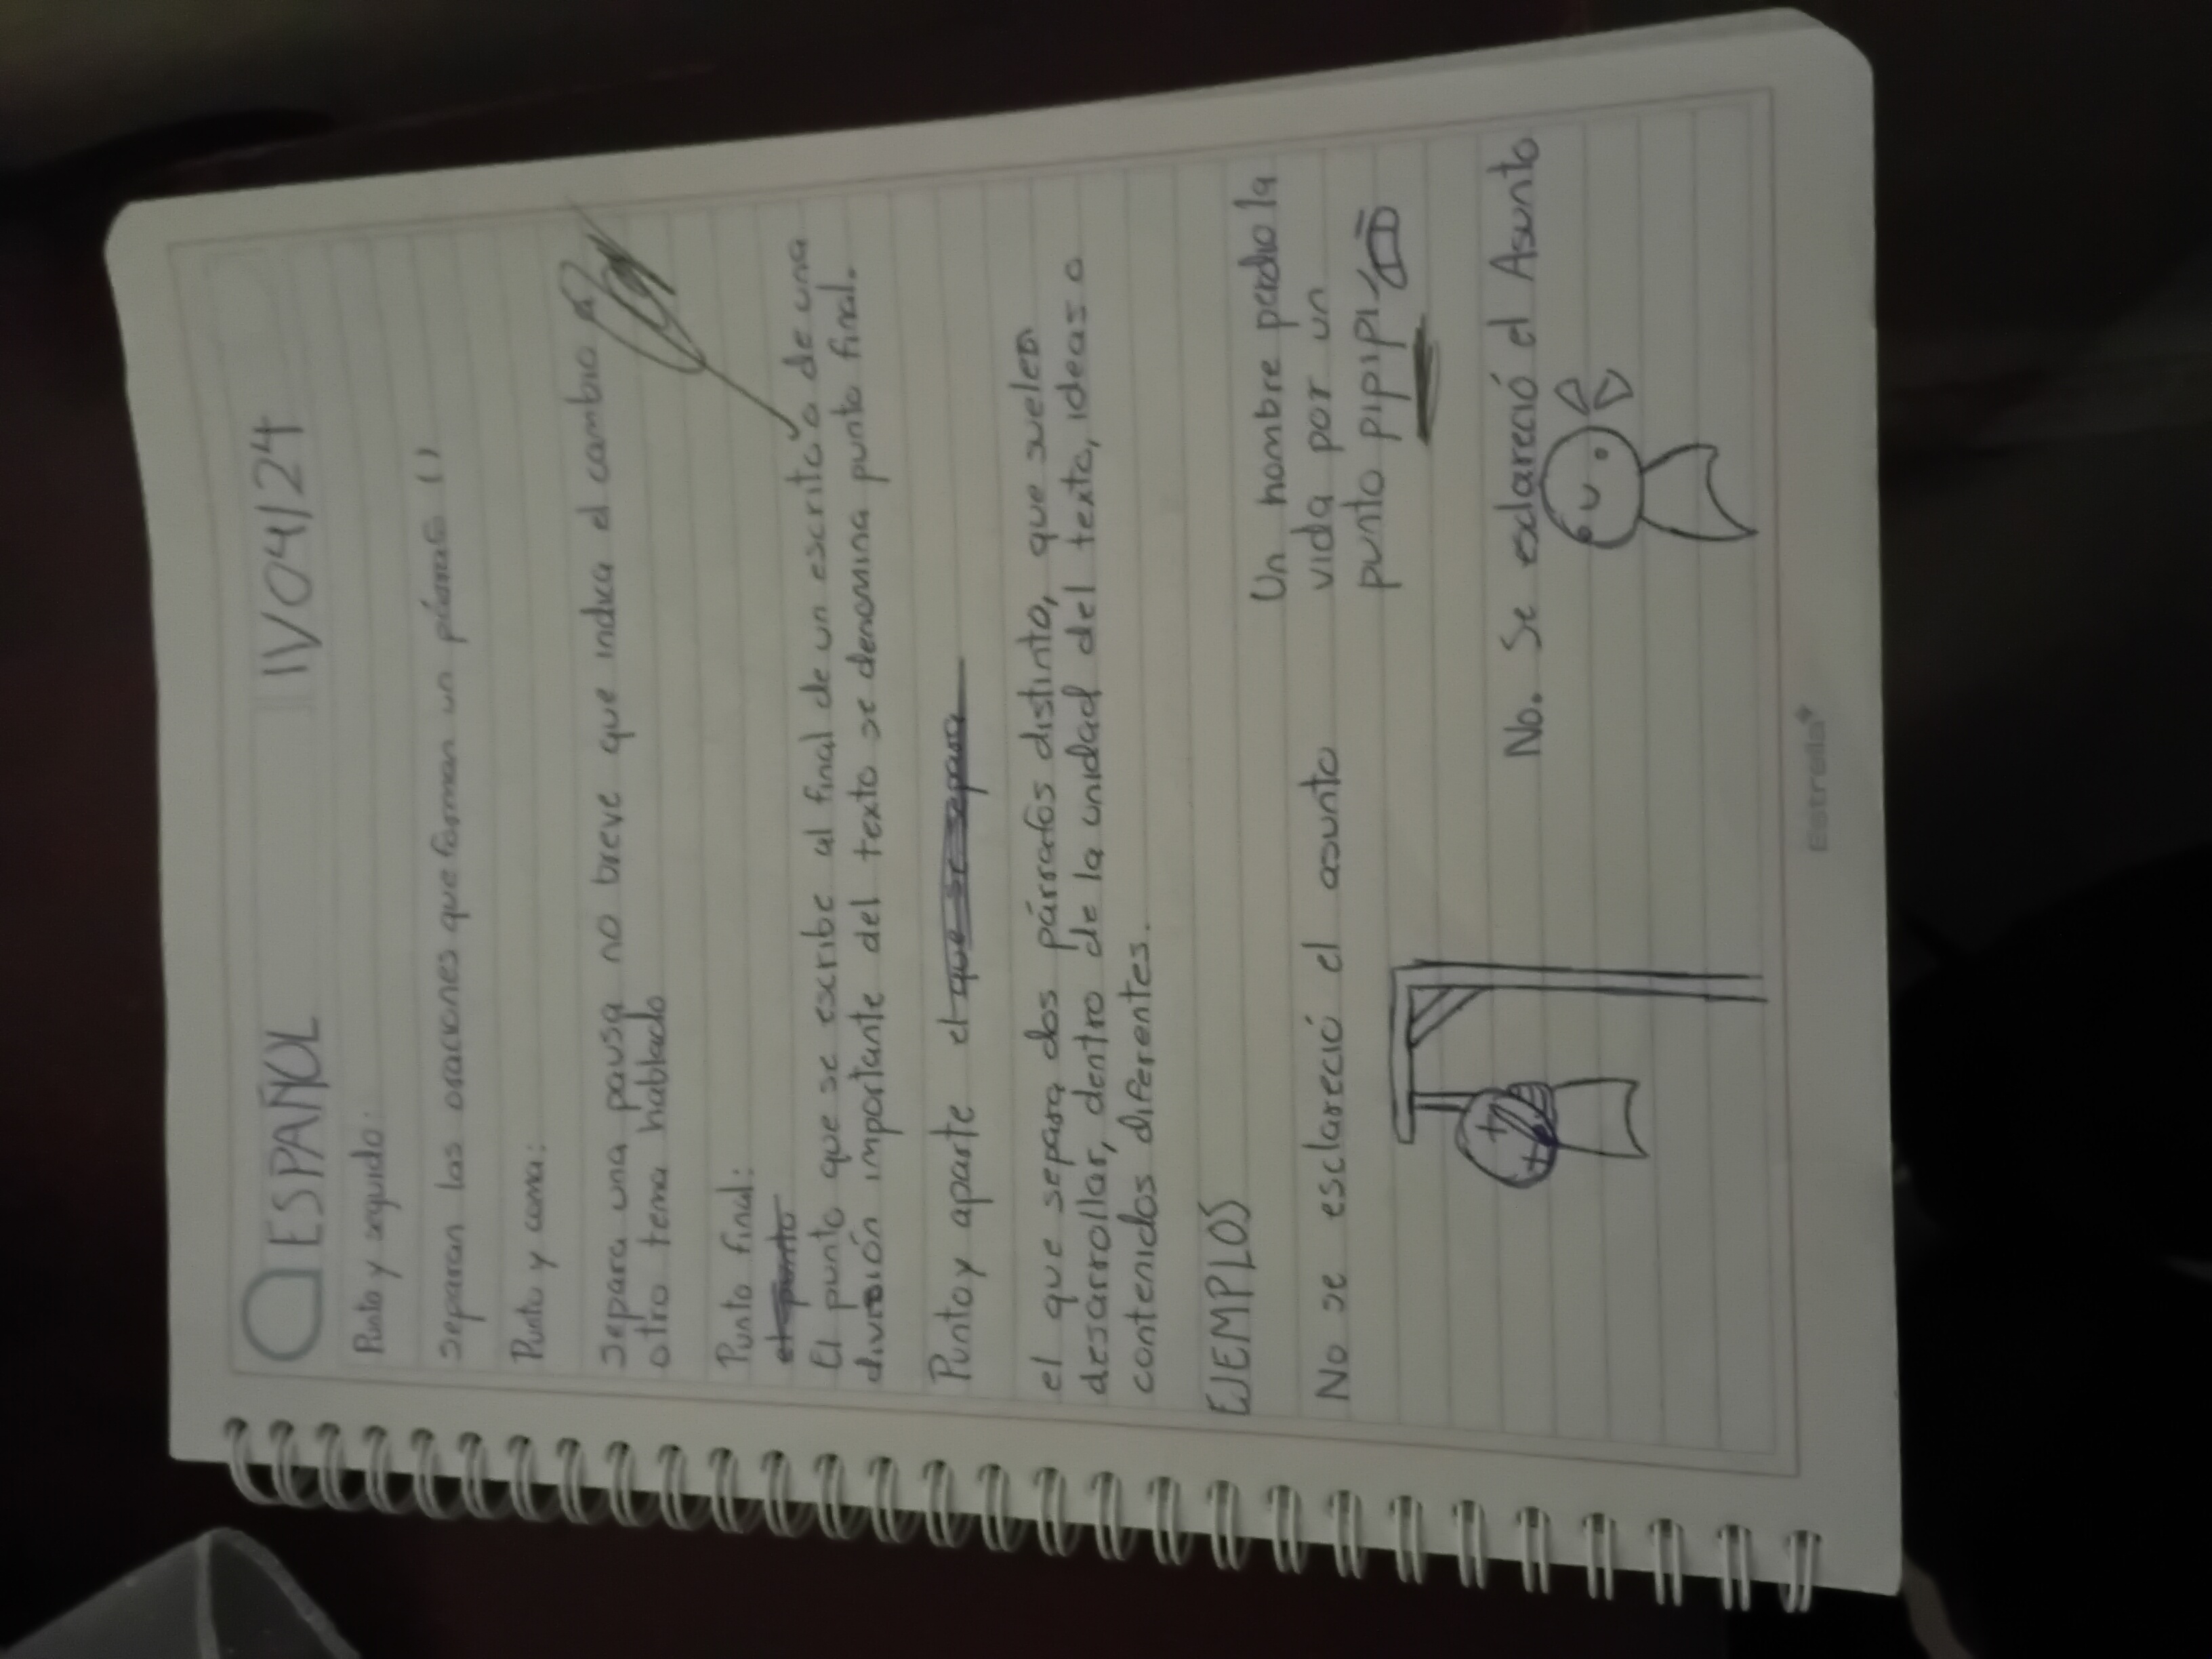 ESPAÑOL
Punto y seguido:
separan las oraciones que forman un
Punto y coma:
separa una pausa no breve que indica el cambio a
otro tema hablado
Punto final:
el punto
El punto que se escribe al final de un escrito o de una
división importante del texto se denomina punto final.
Punto y aparte el que se separa
el que separa dos párrafos distinto, que suelen
desarrollar, dentro de la unidad del texto, ideas o
contenidos diferentes.
EJEMPLOS
Un hombre perdio la
vida por un
punto pipipi
No se esclareció el asunto
No. Se esclareció el Asunto
Estrella